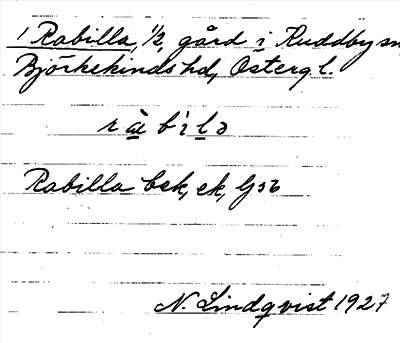 1 Rabilla, 1/2, gård i Ruddby sn
Björkekinds hd, Österg. l.
Rabilla bek, ek,
N. Lindqvist 1927